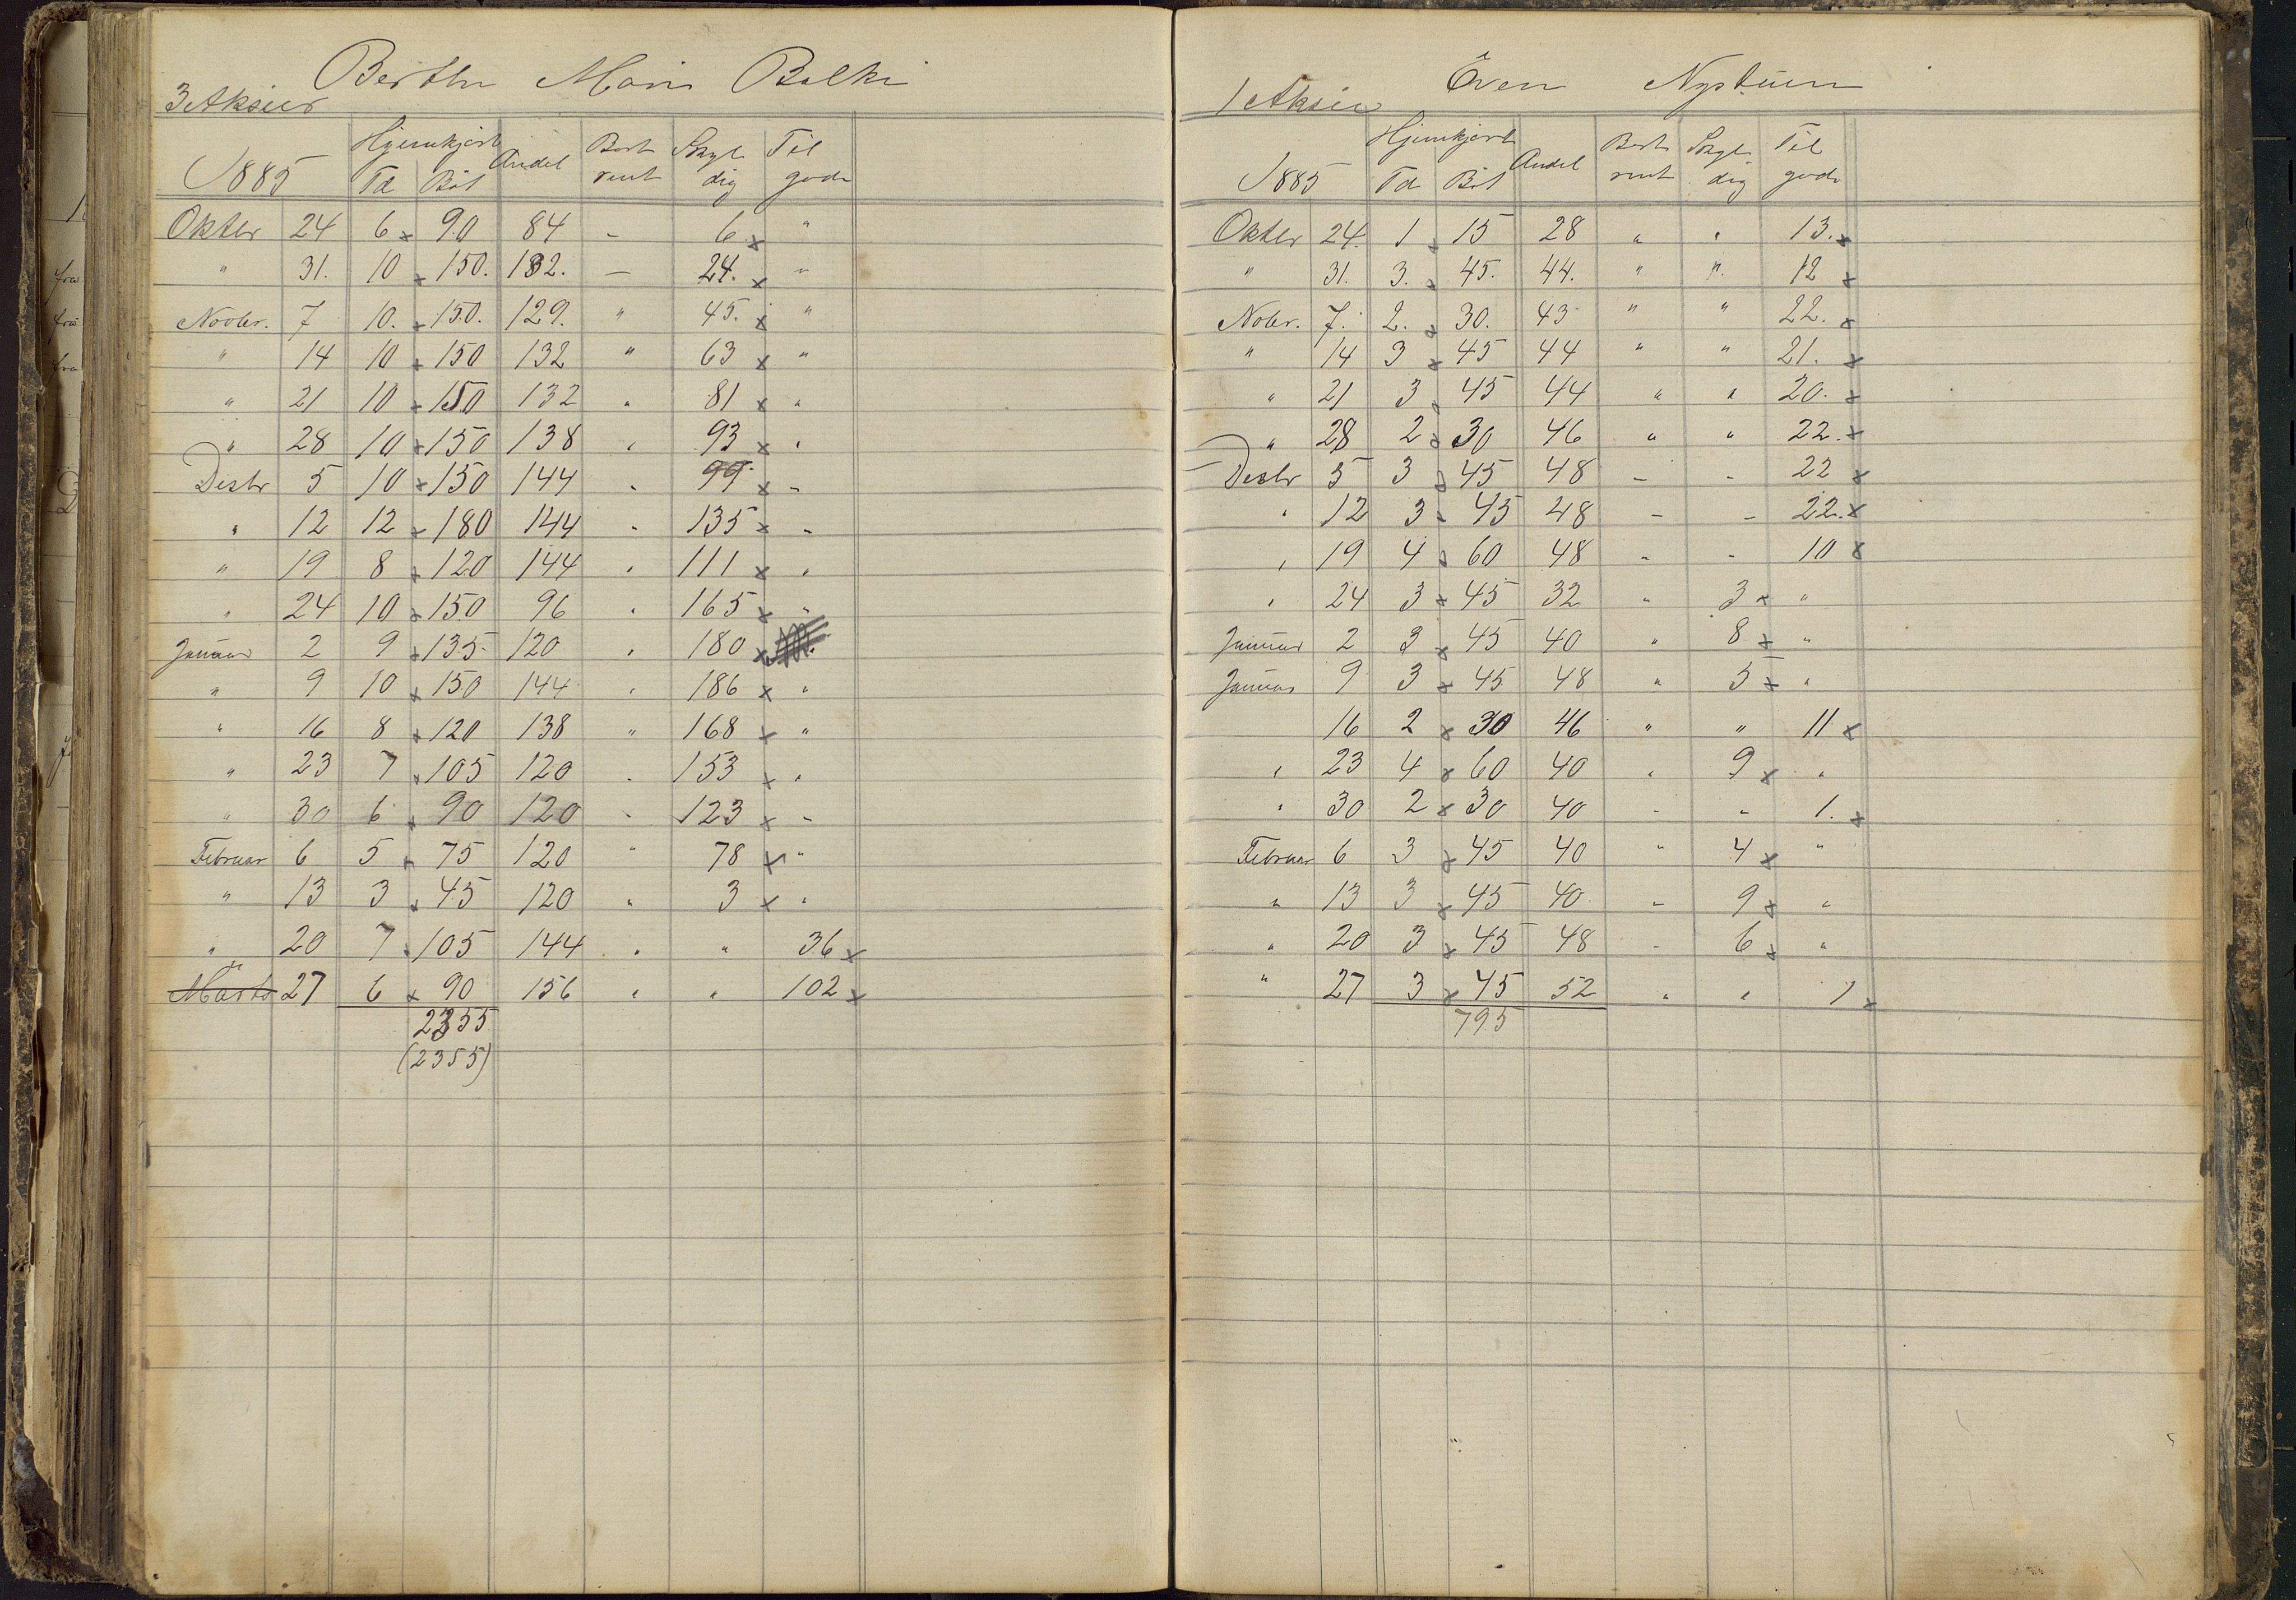 Berthe Mari Bolki
3 Aksier
Hjemkjørt Andel Bort Skyl Til
1885 Td Bøt rent dig gode
Oktbr 24 6 x 90 84 - 6 x "
" 31. 10 x 150. 132. - 24. x "
Novbr. 7 10. x 150. 129. " 45. x "
" 14 10 x 150 132 " 63 x "
" 21 10 x 150 132 " 81 x "
" 28 10 x 150 138 " 93 x "
Desbr 5 10 x 150 144 " 99 x -
" 12 12 x 180 144 - 135 x -
" 19 8 x 120 144 " 111 x "
" 24 10 x 150 96 " 165 x "
Januar 2 9 x 135 120 " 180 x
" 9 10 x 150 144 " 186 x "
" 16 8 x 120 138 " 168 x "
" 23 7 x 105 120 - 153 x "
" 30 6 x 90 120 - 123 x -
Februar 6 5 x 75 120 " 78 x "
" 13 3 x 45 120 " 3 x "
" 20 7 x 105 144 " " 36 x
" Marts 27 6 x 90 156 " " 102 x
2355
(2355)
Even Nystuen
1 Aksie
Hjemkjørt Andel Bort Skyl Til
1885 Td Bøt rent dig gode
Oktbr 24. 1 x 15 28 " " 13. x
" 31. 3. x 45. 44. " " 12 x
Nobr. 7. 2. x 30. 43 " " 22. x
" 14 3 x 45 44 " " 21. x
" 21 3 x 45 44 " " 20. x
" 28 2 x 30 46 " " 22. x
Desbr 5 3 x 45 48 - - 22 x
" 12 3 x 45 48 - - 22. x
" 19 4 x 60 48 - - 10 x
" 24 3 x 45 32 " 3 x "
Januar 2 3 x 45 40 " 8 x "
Januar 9 3 x 45 48 " 5 x "
16 2 x 30 46 " " 11 x
" 23 4 x 60 40 " 9 x "
" 30 2 x 30 40 - - 1. x
Februar 6 3 x 45 40 " 4 x "
" 13 3 x 45 40 - 9 x "
" 20 3 x 45 48 - 6 x "
" 27 3 x 45 52 " " 1 x
795